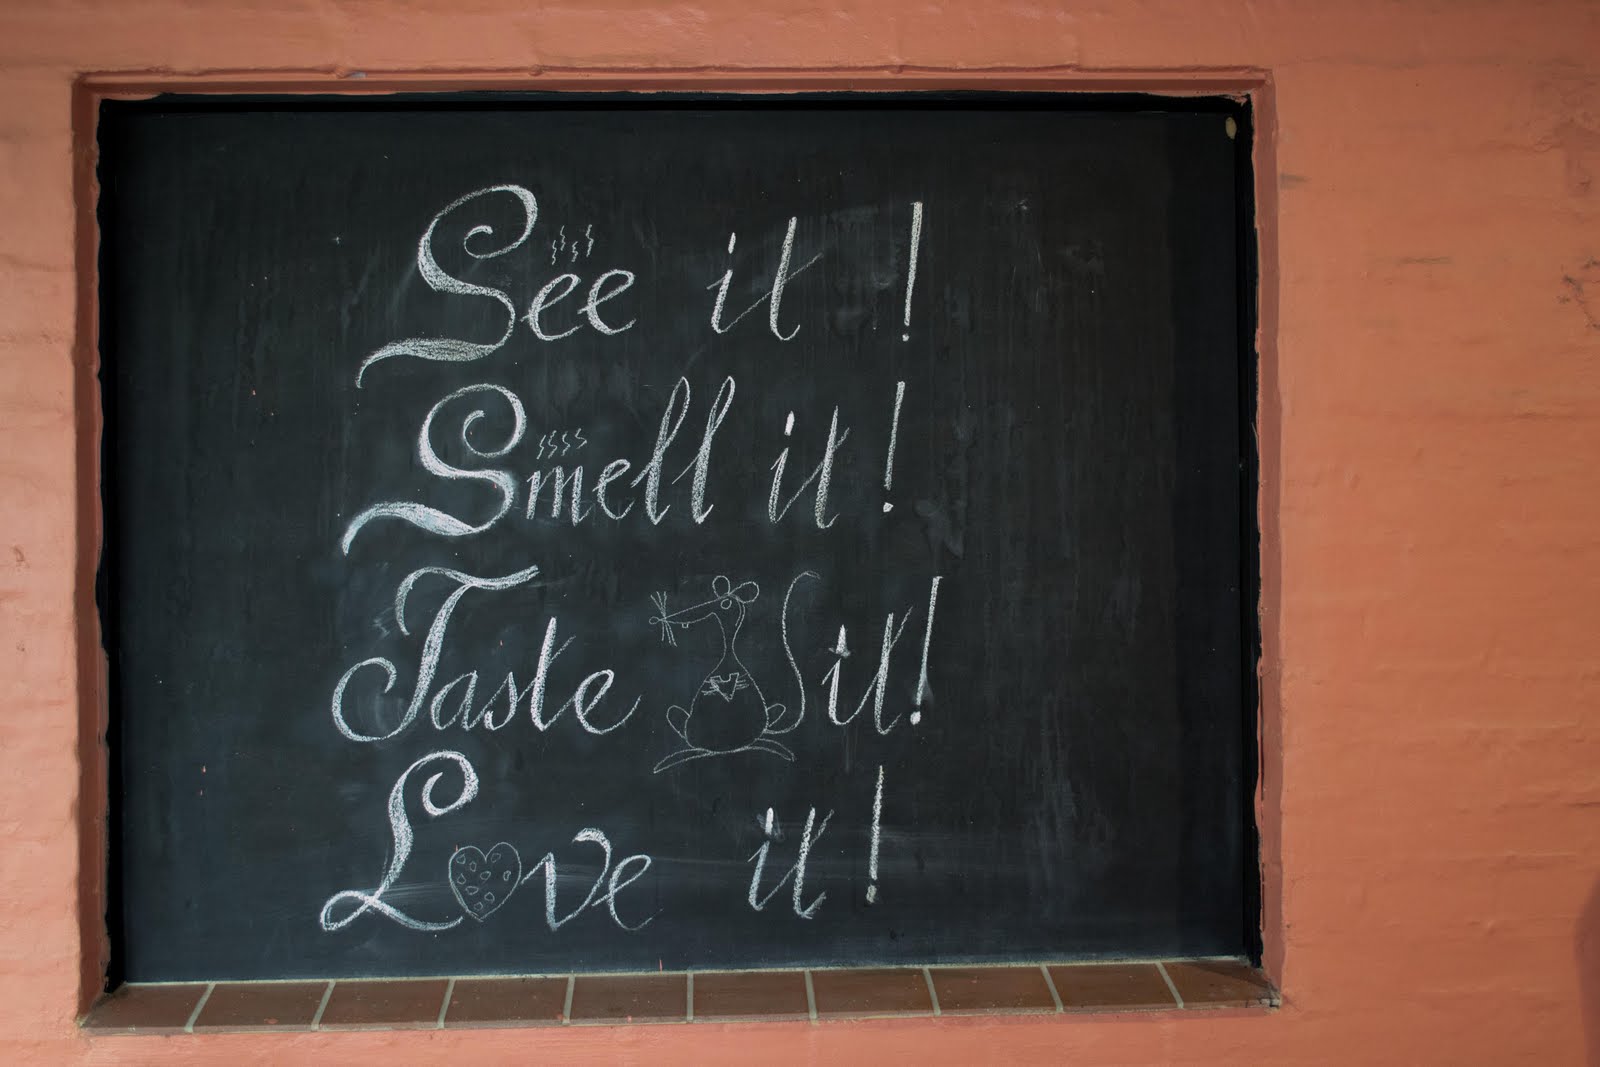 See it!
Smell it!
Taste it!
Love it!